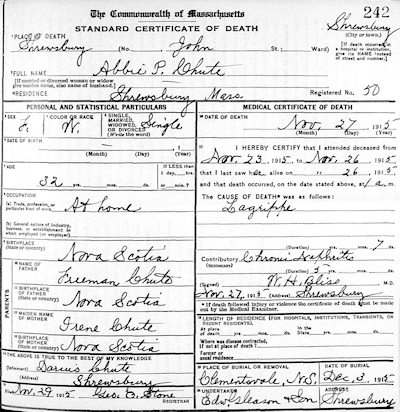 242
The Commonwealth of Massachusetts
STANDARD CERTIFICATE OF DEATH
Shrewsbury
(City or town.)
*PLACE OF DEATH
Shrewsbury (No. John St.; Ward)
[If death occurred in a hospital or institution, give its NAME instead of street and number.]
*FULL NAME Abbie P. Chute
[If married or divorced woman or widow give maiden name, also name of husband.]
*RESIDENCE Shrewsbury Mass. Registered No. 50
PERSONAL AND STATISTICAL PARTICULARS
*SEX F.
*COLOR OR RACE W.
*SINGLE, MARRIED, WIDOWED, OR DIVORCED (Write the word) Single
*DATE OF BIRTH
(Month) (Day) (Year)
*AGE
32 yrs. mos. ds.
If LESS than 1 day, hrs. or min.?
*OCCUPATION
(a) Trade, profession, or particular kind of work At home
(b) General nature of industry, business, or establishment in which employed (or employer)
*BIRTHPLACE
(State or country) Nova Scotia
PARENTS
*NAME OF FATHER Freeman Chute
*BIRTHPLACE OF FATHER
(State or country) Nova Scotia
*MAIDEN NAME OF MOTHER Irene Chute
*BIRTHPLACE OF MOTHER
(State or country) Nova Scotia
*THE ABOVE IS TRUE TO THE BEST OF MY KNOWLEDGE
(Informant) Darius Chute
(Address) Shrewsbury
Filed Nov. 29 1915 Geo. E. Stone
REGISTRAR
MEDICAL CERTIFICATE OF DEATH
*DATE OF DEATH
Nov. 27, 1915
(Month) (Day) (Year)
I HEREBY CERTIFY that I attended deceased from
Nov. 23 1915 to Nov. 26 1915
that I last saw her alive on " 26, 1915
and that death occurred, on the date stated above, at 1 a. m.
The CAUSE OF DEATH* was as follows:
Lagrippe
(Duration) yrs. mos. 7 ds.
Contributory Chronic Nephritis
(SECONDARY)
(Duration) 5 yrs. mos. ds.
(Signed) W. H. Bliss M.D.
Nov. 27, 1915 (Address) Shrewsbury
* If death followed injury or violence the certificate of death must be made out by the Medical Examiner.
*LENGTH OF RESIDENCE (FOR HOSPITALS, INSTITUTIONS, TRANSIENTS, OR RECENT RESIDENTS).
At place of death yrs. mos. ds. In the State yrs. mos. ds.
Where was disease contracted, if not at place of death?
Former or usual residence
*PLACE OF BURIAL OR REMOVAL
Clementsvale, N.S.
DATE OF BURIAL
Dec. 3, 1915
*UNDERTAKER
Edw. Gleason & Son
ADDRESS
Shrewsbury